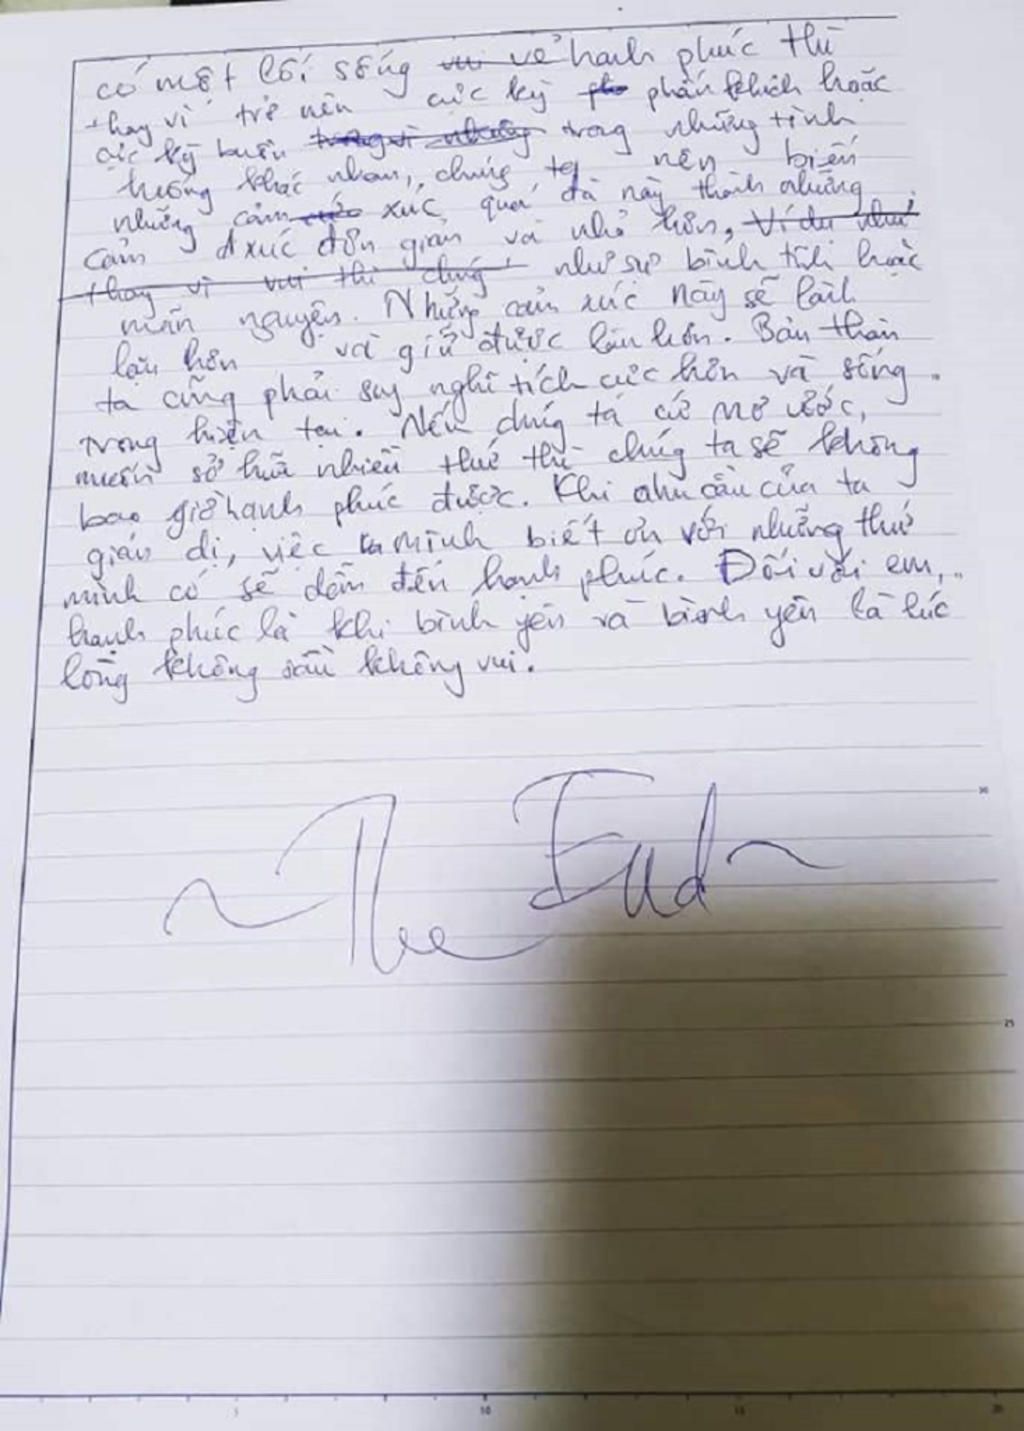 có một lối sống vui vẻ hạnh phúc thì
thay vì trở nên cực kỳ phấn khích hoặc
cực kỳ buồn trong những tình
huống khác nhau, chúng ta nên biến
những cảm xúc quá đà này thành những
cảm xúc đơn giản và nhỏ hơn, Ví dụ như
thay vì vui thì chúng như sự bình tĩnh hoặc
mãn nguyện. Những cảm xúc này sẽ
lâu hơn và giữ được lâu hơn. Bản thân
ta cũng phải suy nghĩ tích cực hơn và sống
trong hiện tại. Nếu chúng ta cứ mơ ước,
muốn sở hữu nhiều thứ thì chúng ta sẽ không
bao giờ hạnh phúc được. Khi nhu cầu của ta
giản dị, việc mình biết ơn với những thứ
mình có sẽ dẫn đến hạnh phúc. Đối với em,
hạnh phúc là khi bình yên và bình yên là lúc
lòng không sầu không vui.
~The End~
30
25
5
10
15
20